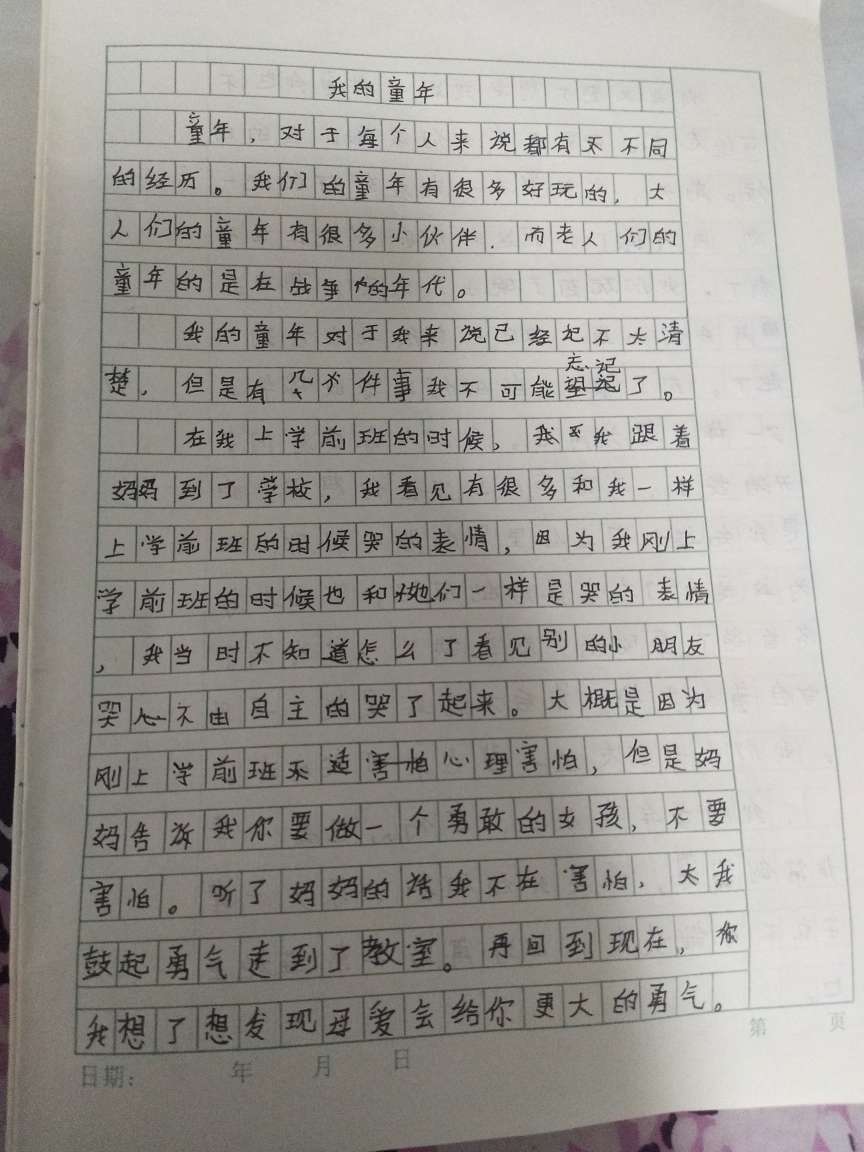 我的童年
童年，对于每个人来说都有不同
的经历。我们的童年有很多好玩的，大
人们的童年有很多小伙伴，而老人们的
童年的是在战争的年代。
我的童年对于我来说已经记不太清
楚，但是有几件事我不可能忘记了。
在我上学前班的时候，我跟着
妈妈到了学校，我看见有很多和我一样
上学前班的时候哭的表情，因为我刚上
学前班的时候也和她们一样是哭的表情
，我当时不知道怎么了看见别的小朋友
哭不由自主的哭了起来。大概是因为
刚上学前班不适心理害怕，但是妈
妈告诉我你要做一个勇敢的女孩，不要
害怕。听了妈妈的话我不在害怕，我
鼓起勇气走到了教室。再回到现在，
我想了想发现母爱会给你更大的勇气。
日期： 年 月 日
第 页